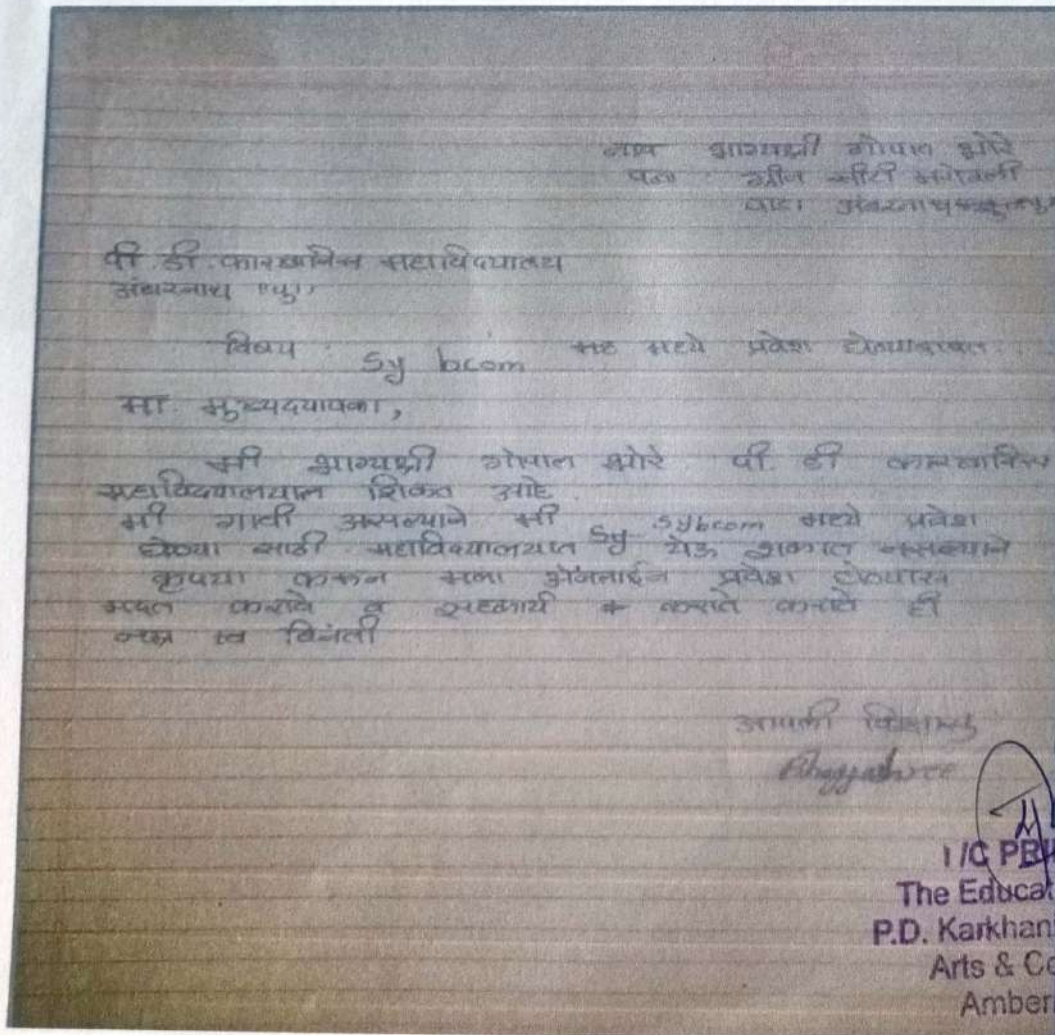 नाव भाग्यश्री गोपाल भोरे
पत्ता ग्रीन सीटी
अंबरनाथ
पी. डी. कारखानिस महाविद्यालय
अंबरनाथ "पु"
विषय : Sy bcom मध्ये प्रवेश घेण्याबाबत.
मा. मुख्यदयापका,
मी भाग्यश्री गोपाल भोरे पी. डी कारखानिस
महाविद्यालयात शिकत आहे.
मी गावी असल्याने मी Sy sybcom मध्ये प्रवेश
घेण्या साठी महाविद्यालयात येऊ शकत नसल्याने
कृपया करून मला ऑनलाईन प्रवेश घेण्यास
मदत करावे व करावे ही
नम्र विनंती
आपली विश्वासु
Bhagyashree
I/C PRI
The Educat
P.D. Karkhan
Arts & Co
Ambern